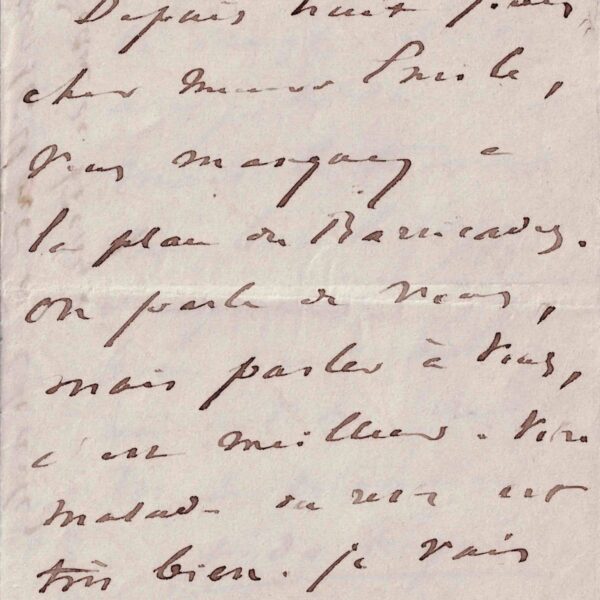 Depuis huit jours
cher Monsieur Émile,
vous manquez à
la place des Barricades.
on parle de vous,
mais parler à vous,
c'est meilleur. Votre
malade du reste est
très bien. je vais